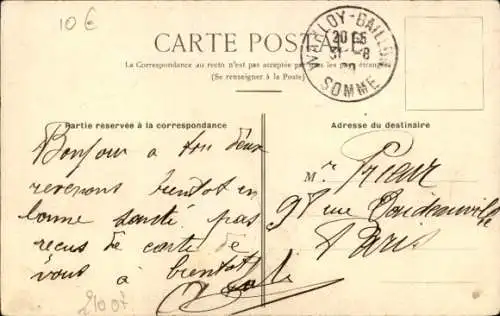 10 €
CARTE POSTALE
La Correspondance au recto n'est pas acceptée par tous les pays étrangers
(Se renseigner à la Poste)
WARLOY-BAILLON
SOMME
Partie réservée à la correspondance
Bonjour a tou deux
revenons bientot en
bonne santé pas
recus de carte de
vous à bientot
Adresse du destinataire
M.r Prieur
98 rue
Paris